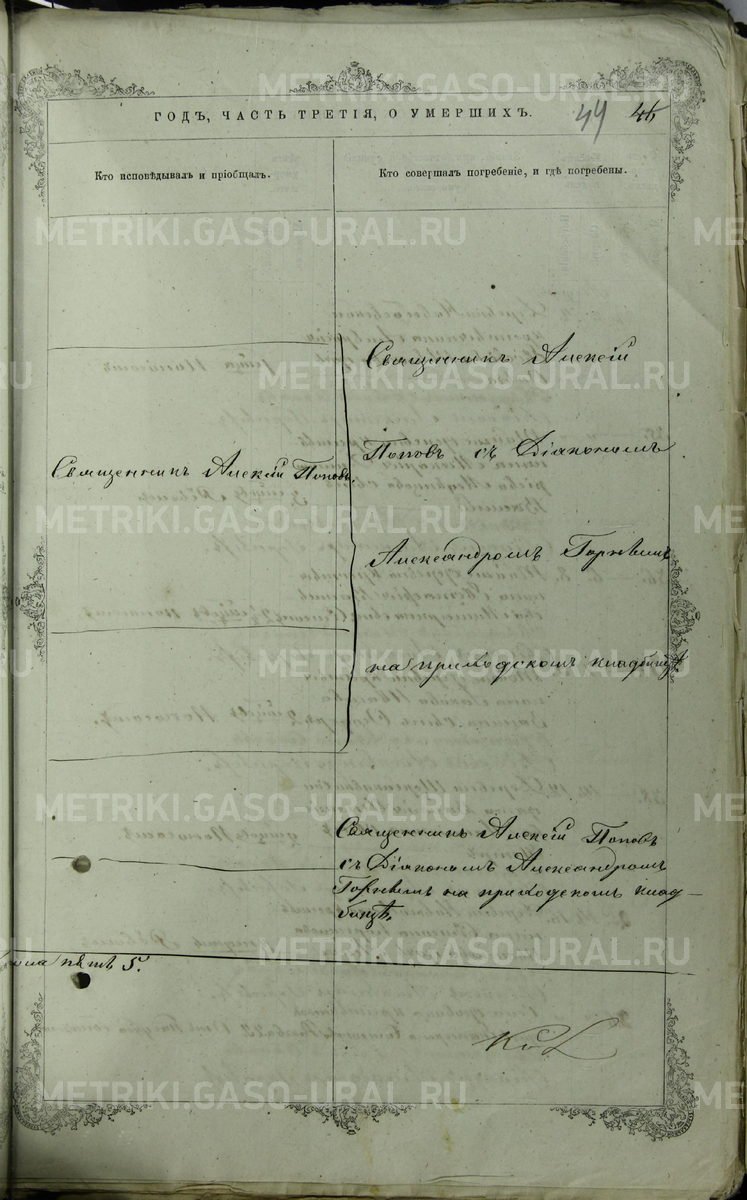 METRIKI.GASO-URAL.RU
ГОДЪ, ЧАСТЬ ТРЕТІЯ, О УМЕРШИХЪ.
44
Кто исповѣдывалъ и пріобщалъ.
Кто совершалъ погребеніе, и гдѣ погребены.
Священникъ Алексій Поповъ.
Священникъ Алексій
Поповъ съ Діакономъ
Александромъ
на приходскомъ кладбищѣ
Священникъ Алексій Поповъ
съ Діакономъ Александромъ
на приходскомъ клад-
бищѣ.
пять 5.